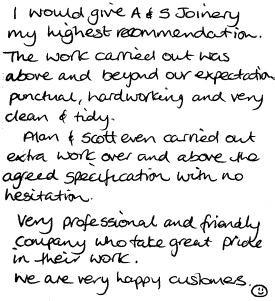 I would give A & S Joinery
my highest recommendation.
The work carried out was
above and beyond our expectation
punctual, hardworking and very
clean & tidy.
Alan & Scott even carried out
extra work over and above the
agreed specification with no
hesitation.
Very professional and friendly
company who take great pride
in their work.
We are very happy customers. ☺